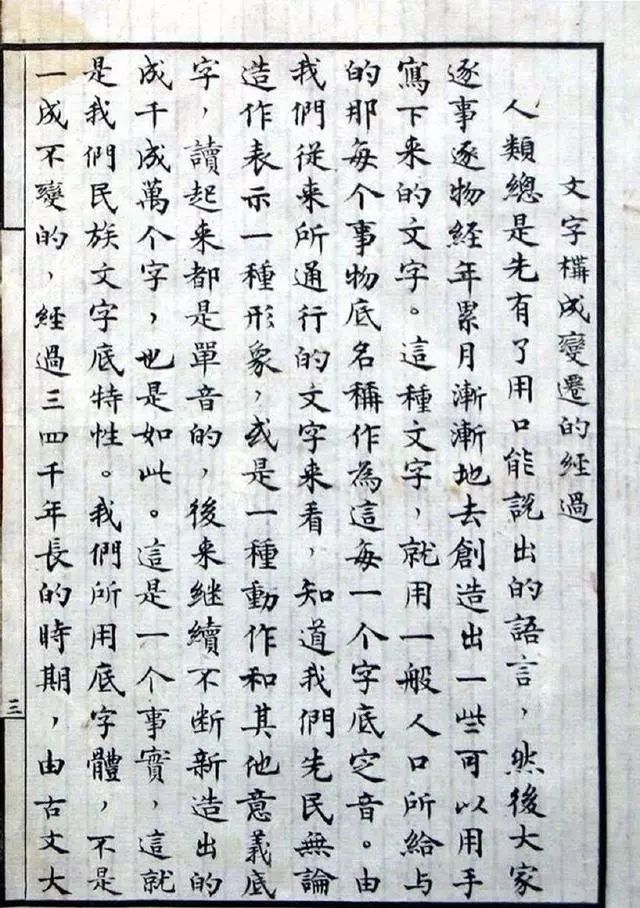 文字構成變遷的經過
人類總是先有了用口能說出的語言，然後大家
逐事逐物經年累月漸漸地去創造出一些可以用手
寫下来的文字。這種文字，就用一般人口所給与
的那每个事物底名稱作為這每一个字底定音。由
我們從来所通行的文字来看，知道我們先民無論
造作表示一種形象，或是一種動作和其他意義底
字，讀起来都是單音的，後来継續不断新造出的
成千成萬个字，也是如此。這是一个事實，這就
是我們民族文字底特性。我們所用底字體，不是
一成不變的，經過三四千年長的時期，由古文大
三